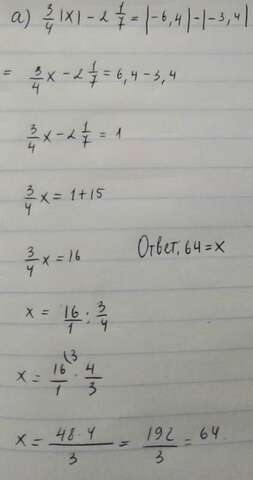 а) 3/4 |x| - 2 1/7 = |-6,4| - |-3,4|
= 3/4 x - 2 1/7 = 6,4 - 3,4
3/4 x - 2 1/7 = 1
3/4 x = 1 + 15
3/4 x = 16 Ответ, 64 = x
x = 16/1 : 3/4
x = 16/1 (3 · 4/3
x = 48·4/3 = 192/3 = 64.